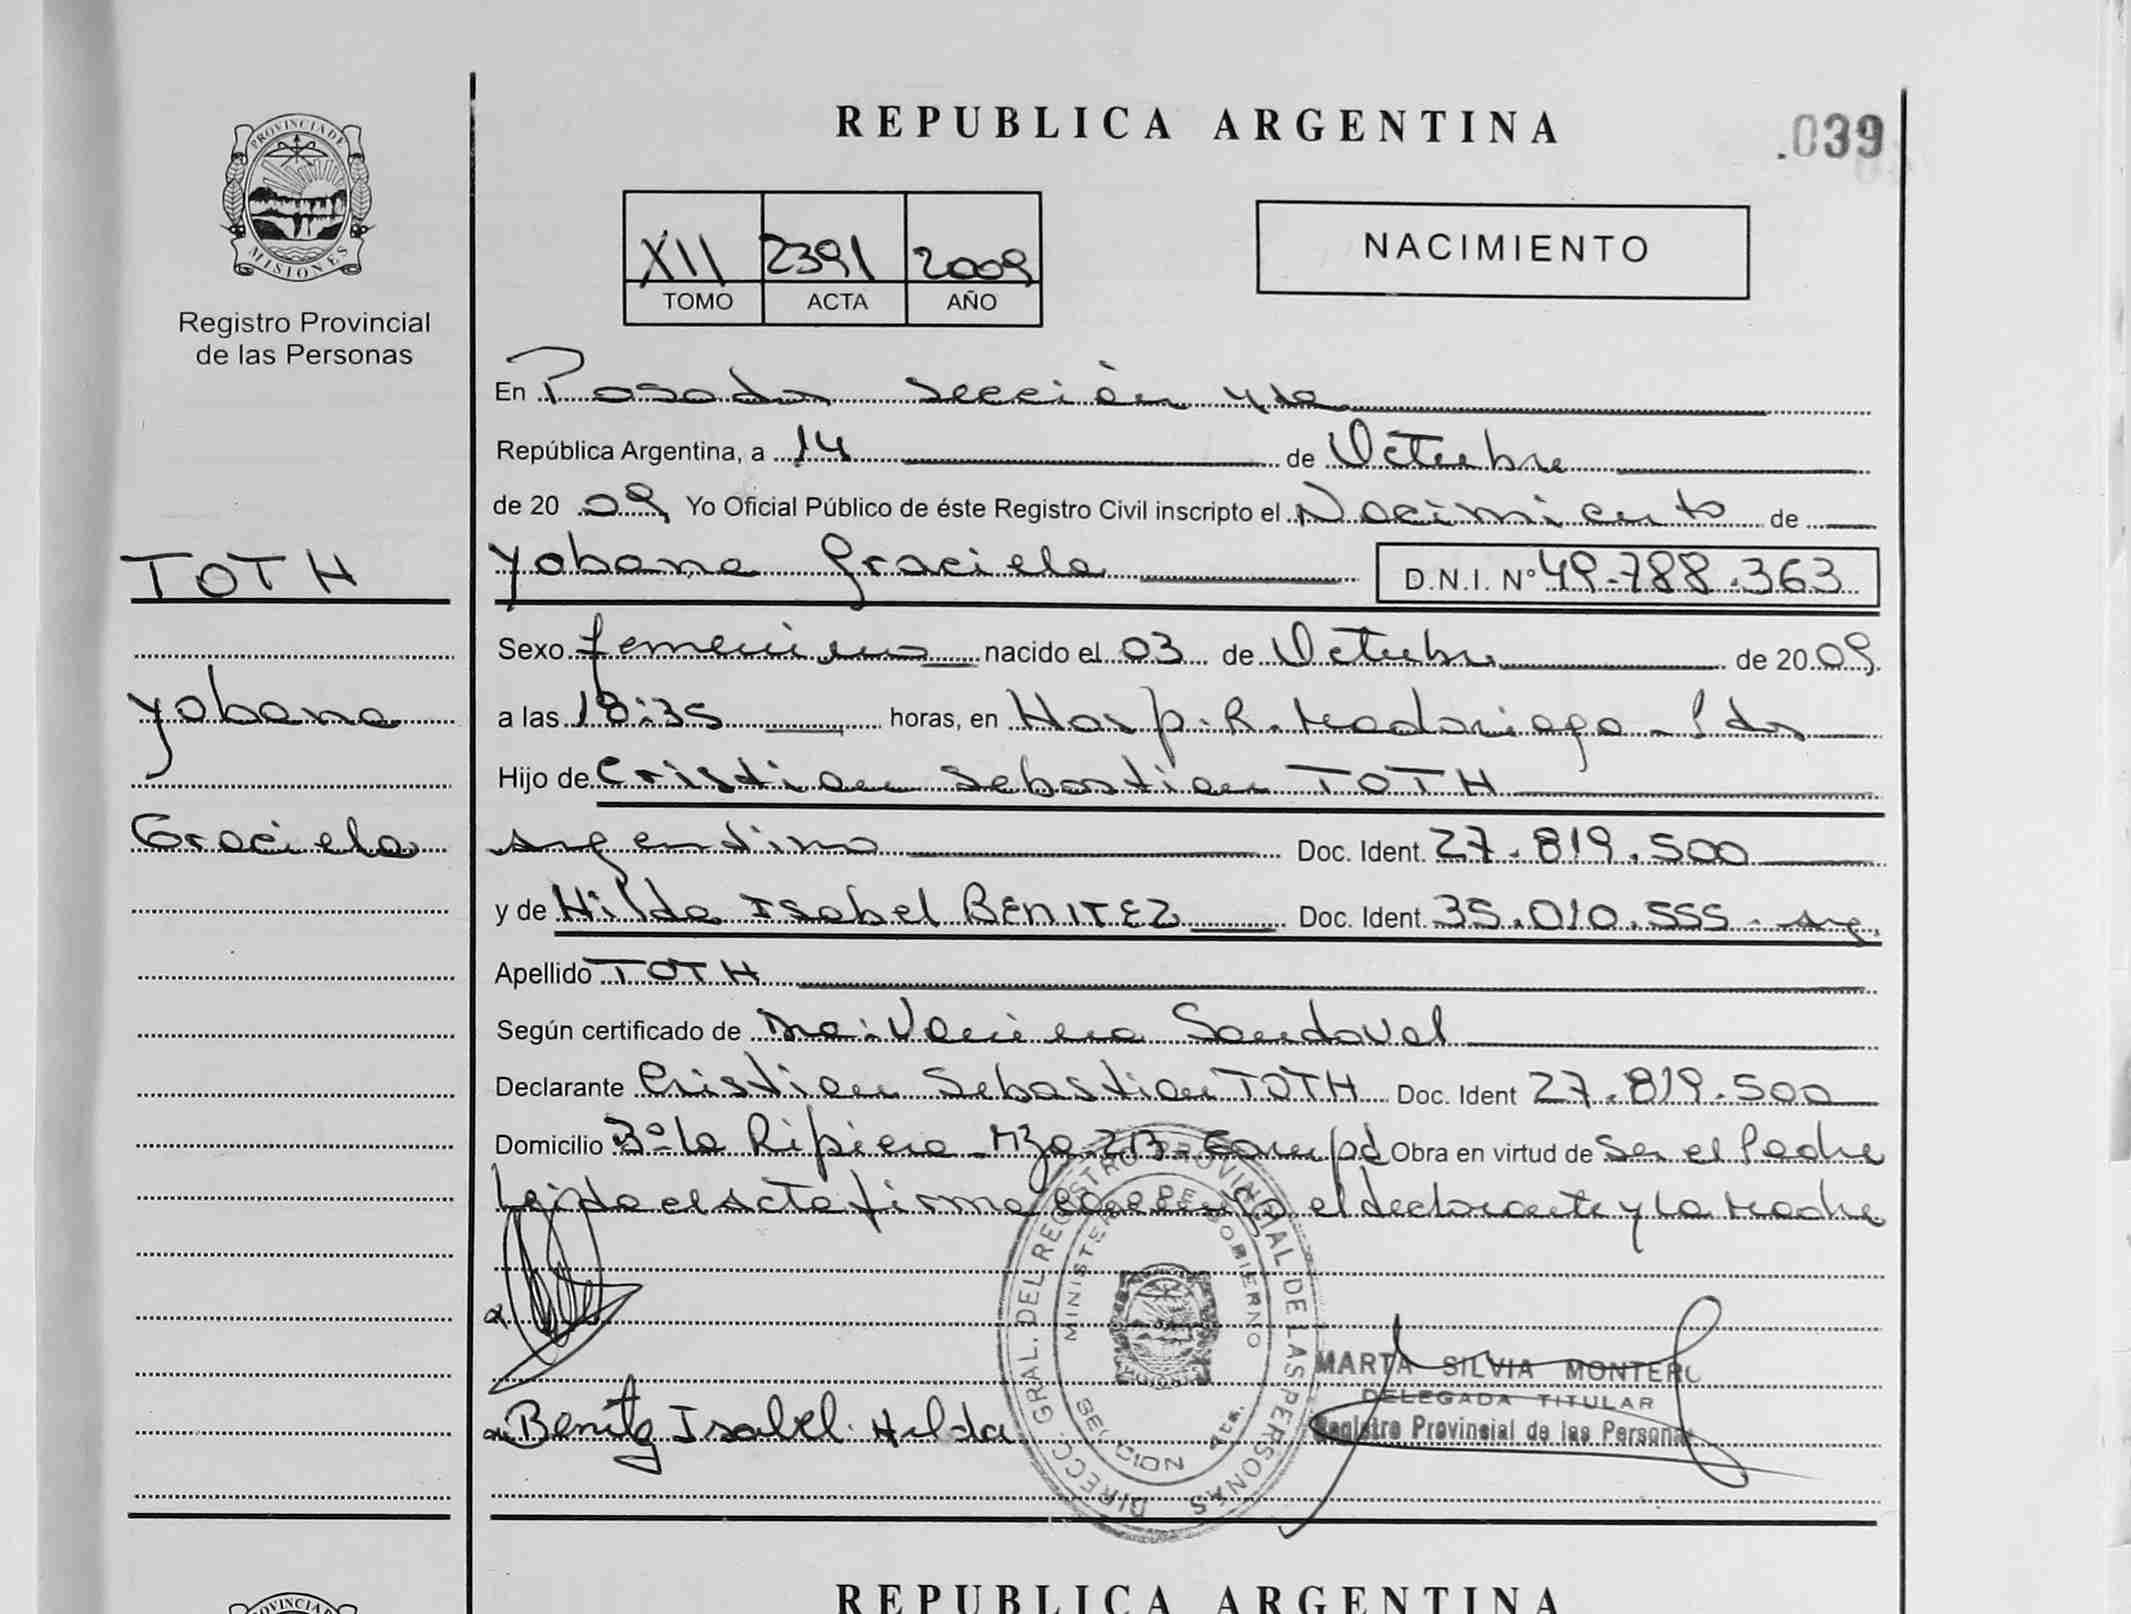 REPUBLICA ARGENTINA
.039
PROVINCIA DE
MISIONES
Registro Provincial
de las Personas
XII 2391 2009
TOMO ACTA AÑO
NACIMIENTO
En Posadas sección 4ta
República Argentina, a 14 de Octubre
de 20 09 Yo Oficial Público de éste Registro Civil inscripto el Nacimiento de
TOTH
Yobana Graciela D.N.I. Nº 49.788.363
Sexo femenino nacido el 03 de Octubre de 20 09
Yobana
a las 18:35 horas, en Hosp. R. Madariaga - Pdas
Hijo de Cristian Sebastian TOTH
Graciela
Argentino Doc. Ident. 27.819.500
y de Hilda Isabel BENITEZ Doc. Ident. 35.010.555 - Arg.
Apellido TOTH
Según certificado de Dra. Vanina Sandoval
Declarante Cristian Sebastian TOTH Doc. Ident 27.819.500
Domicilio Bº La Ripiera - Mza 213 - Obra en virtud de Ser el Padre
Leida el Acta firma el declarante y La Madre
DIRECC. GRAL. DEL REGISTRO PROVINCIAL DE LAS PERSONAS
MINISTERIO DE GOBIERNO
SECCION 4ta.
MARTA SILVIA MONTERO
DELEGADA TITULAR
Registro Provincial de las Personas
Benitz Isabel Hilda
PROVINCIA
REPUBLICA ARGENTINA